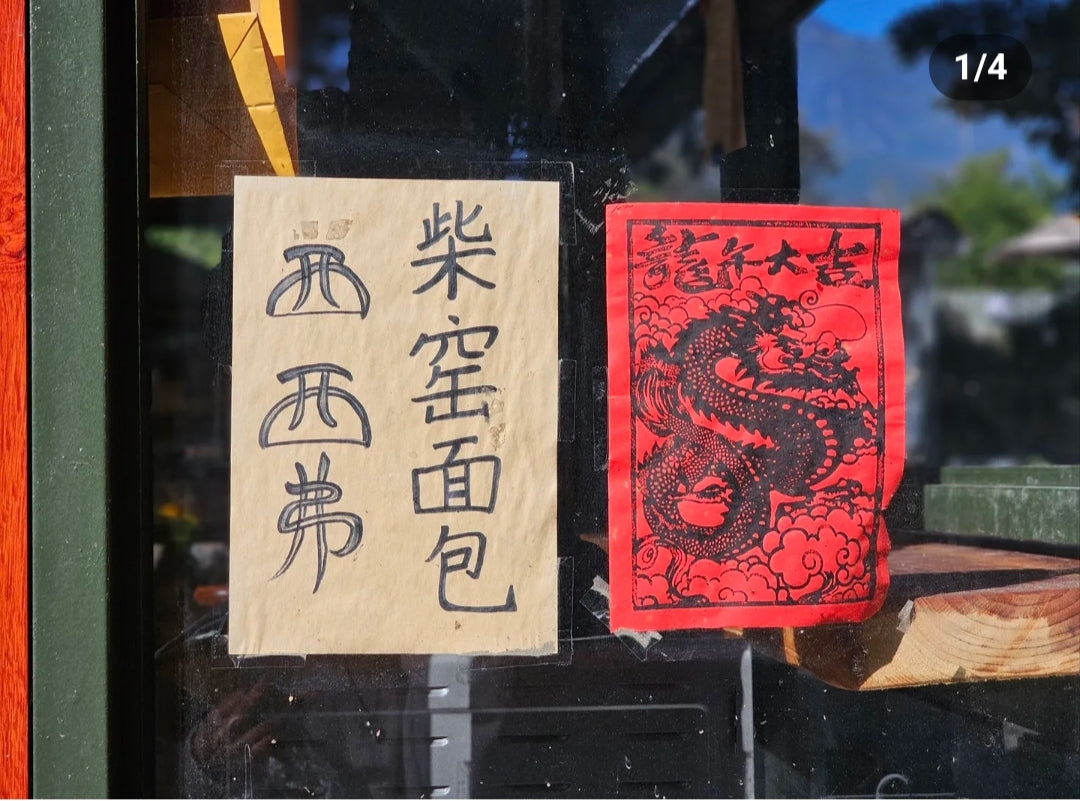 柴窑面包
西西弗
龍年大吉
1/4